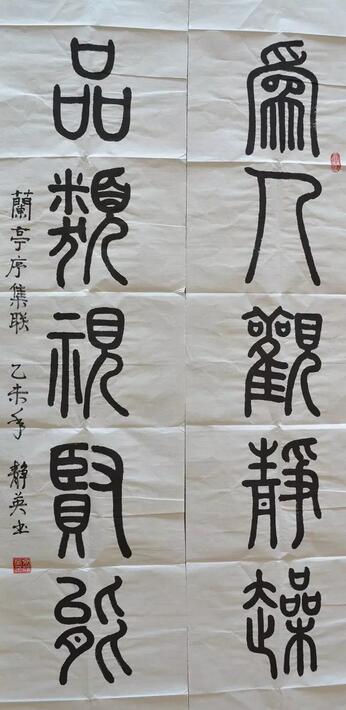 為人觀靜趮
品類視賢能
蘭亭序集联 乙未年 静英书